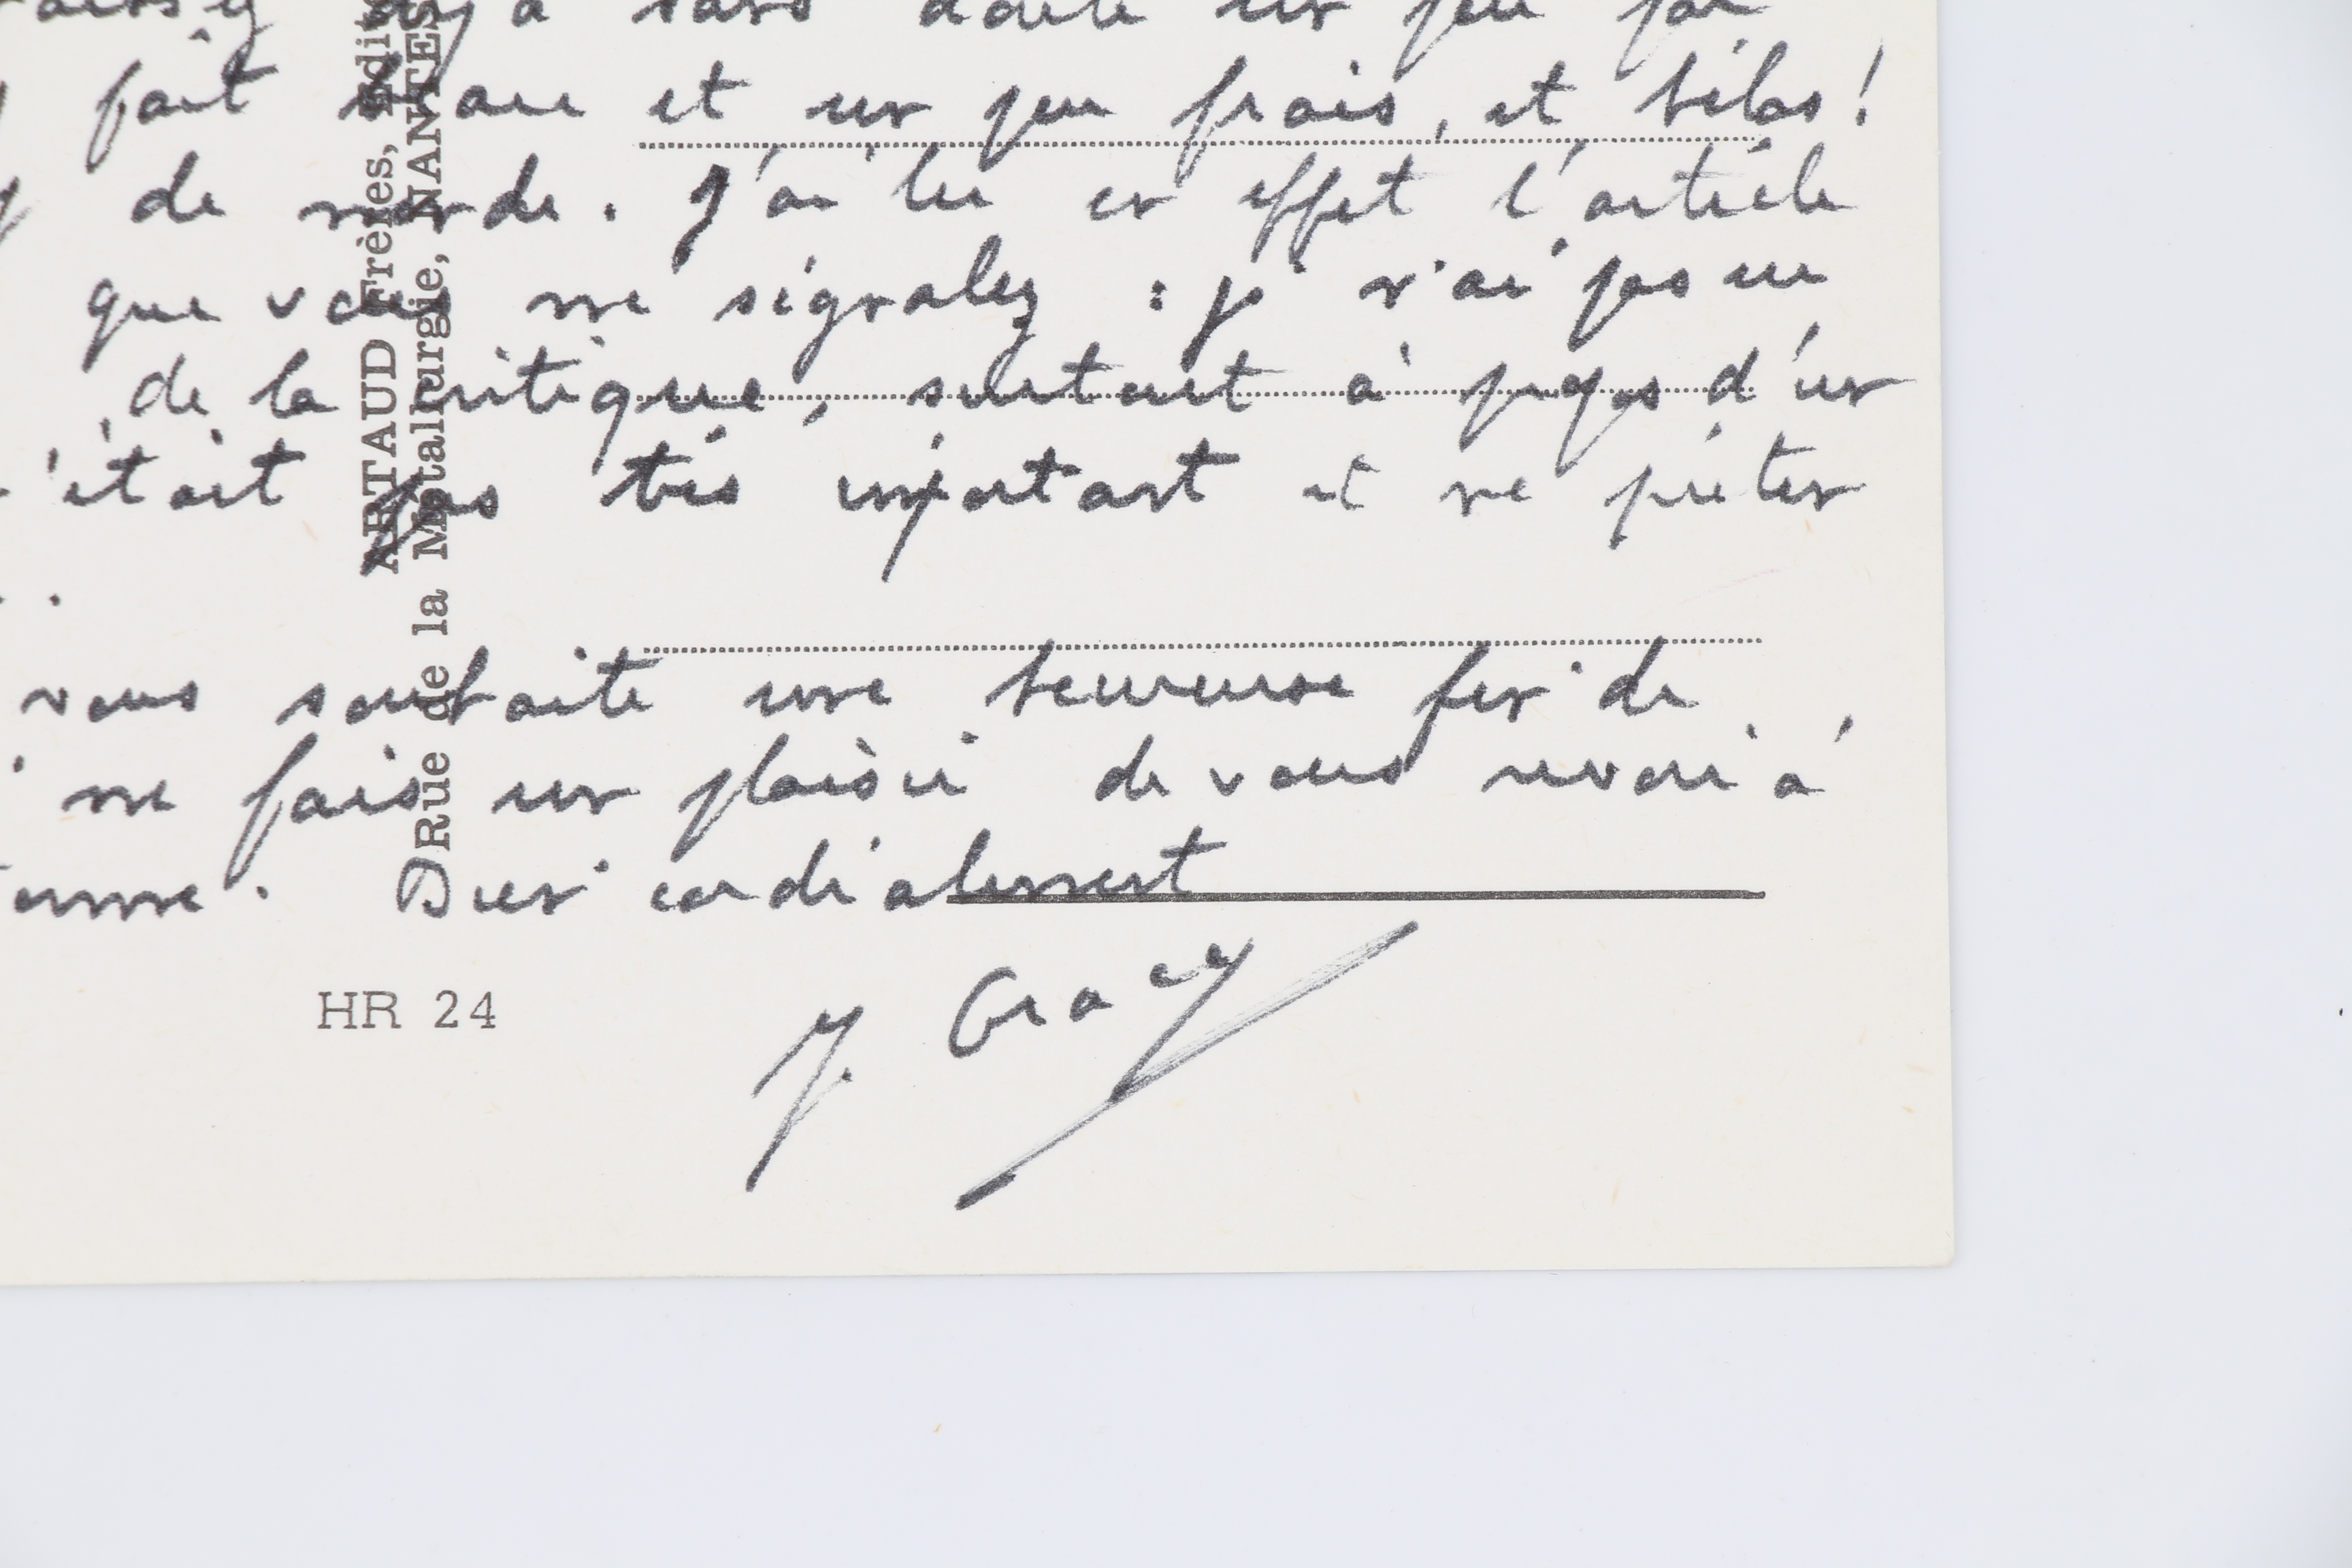 déjà sans doute un peu par
fait doux et un peu frais, et hélas!
de monde. J'ai lu en effet l'article
que vous me signalez : je n'ai pas eu
de la critique, surtout à propos d'un
'était pas très important et ne prêter
..
vous souhaite une heureuse fin de
me fais un plaisir de vous revoir à
Bien cordialement
J. Gracq
HR 24
ARTAUD Frères, Edit
Rue de la Métallurgie, NANTES